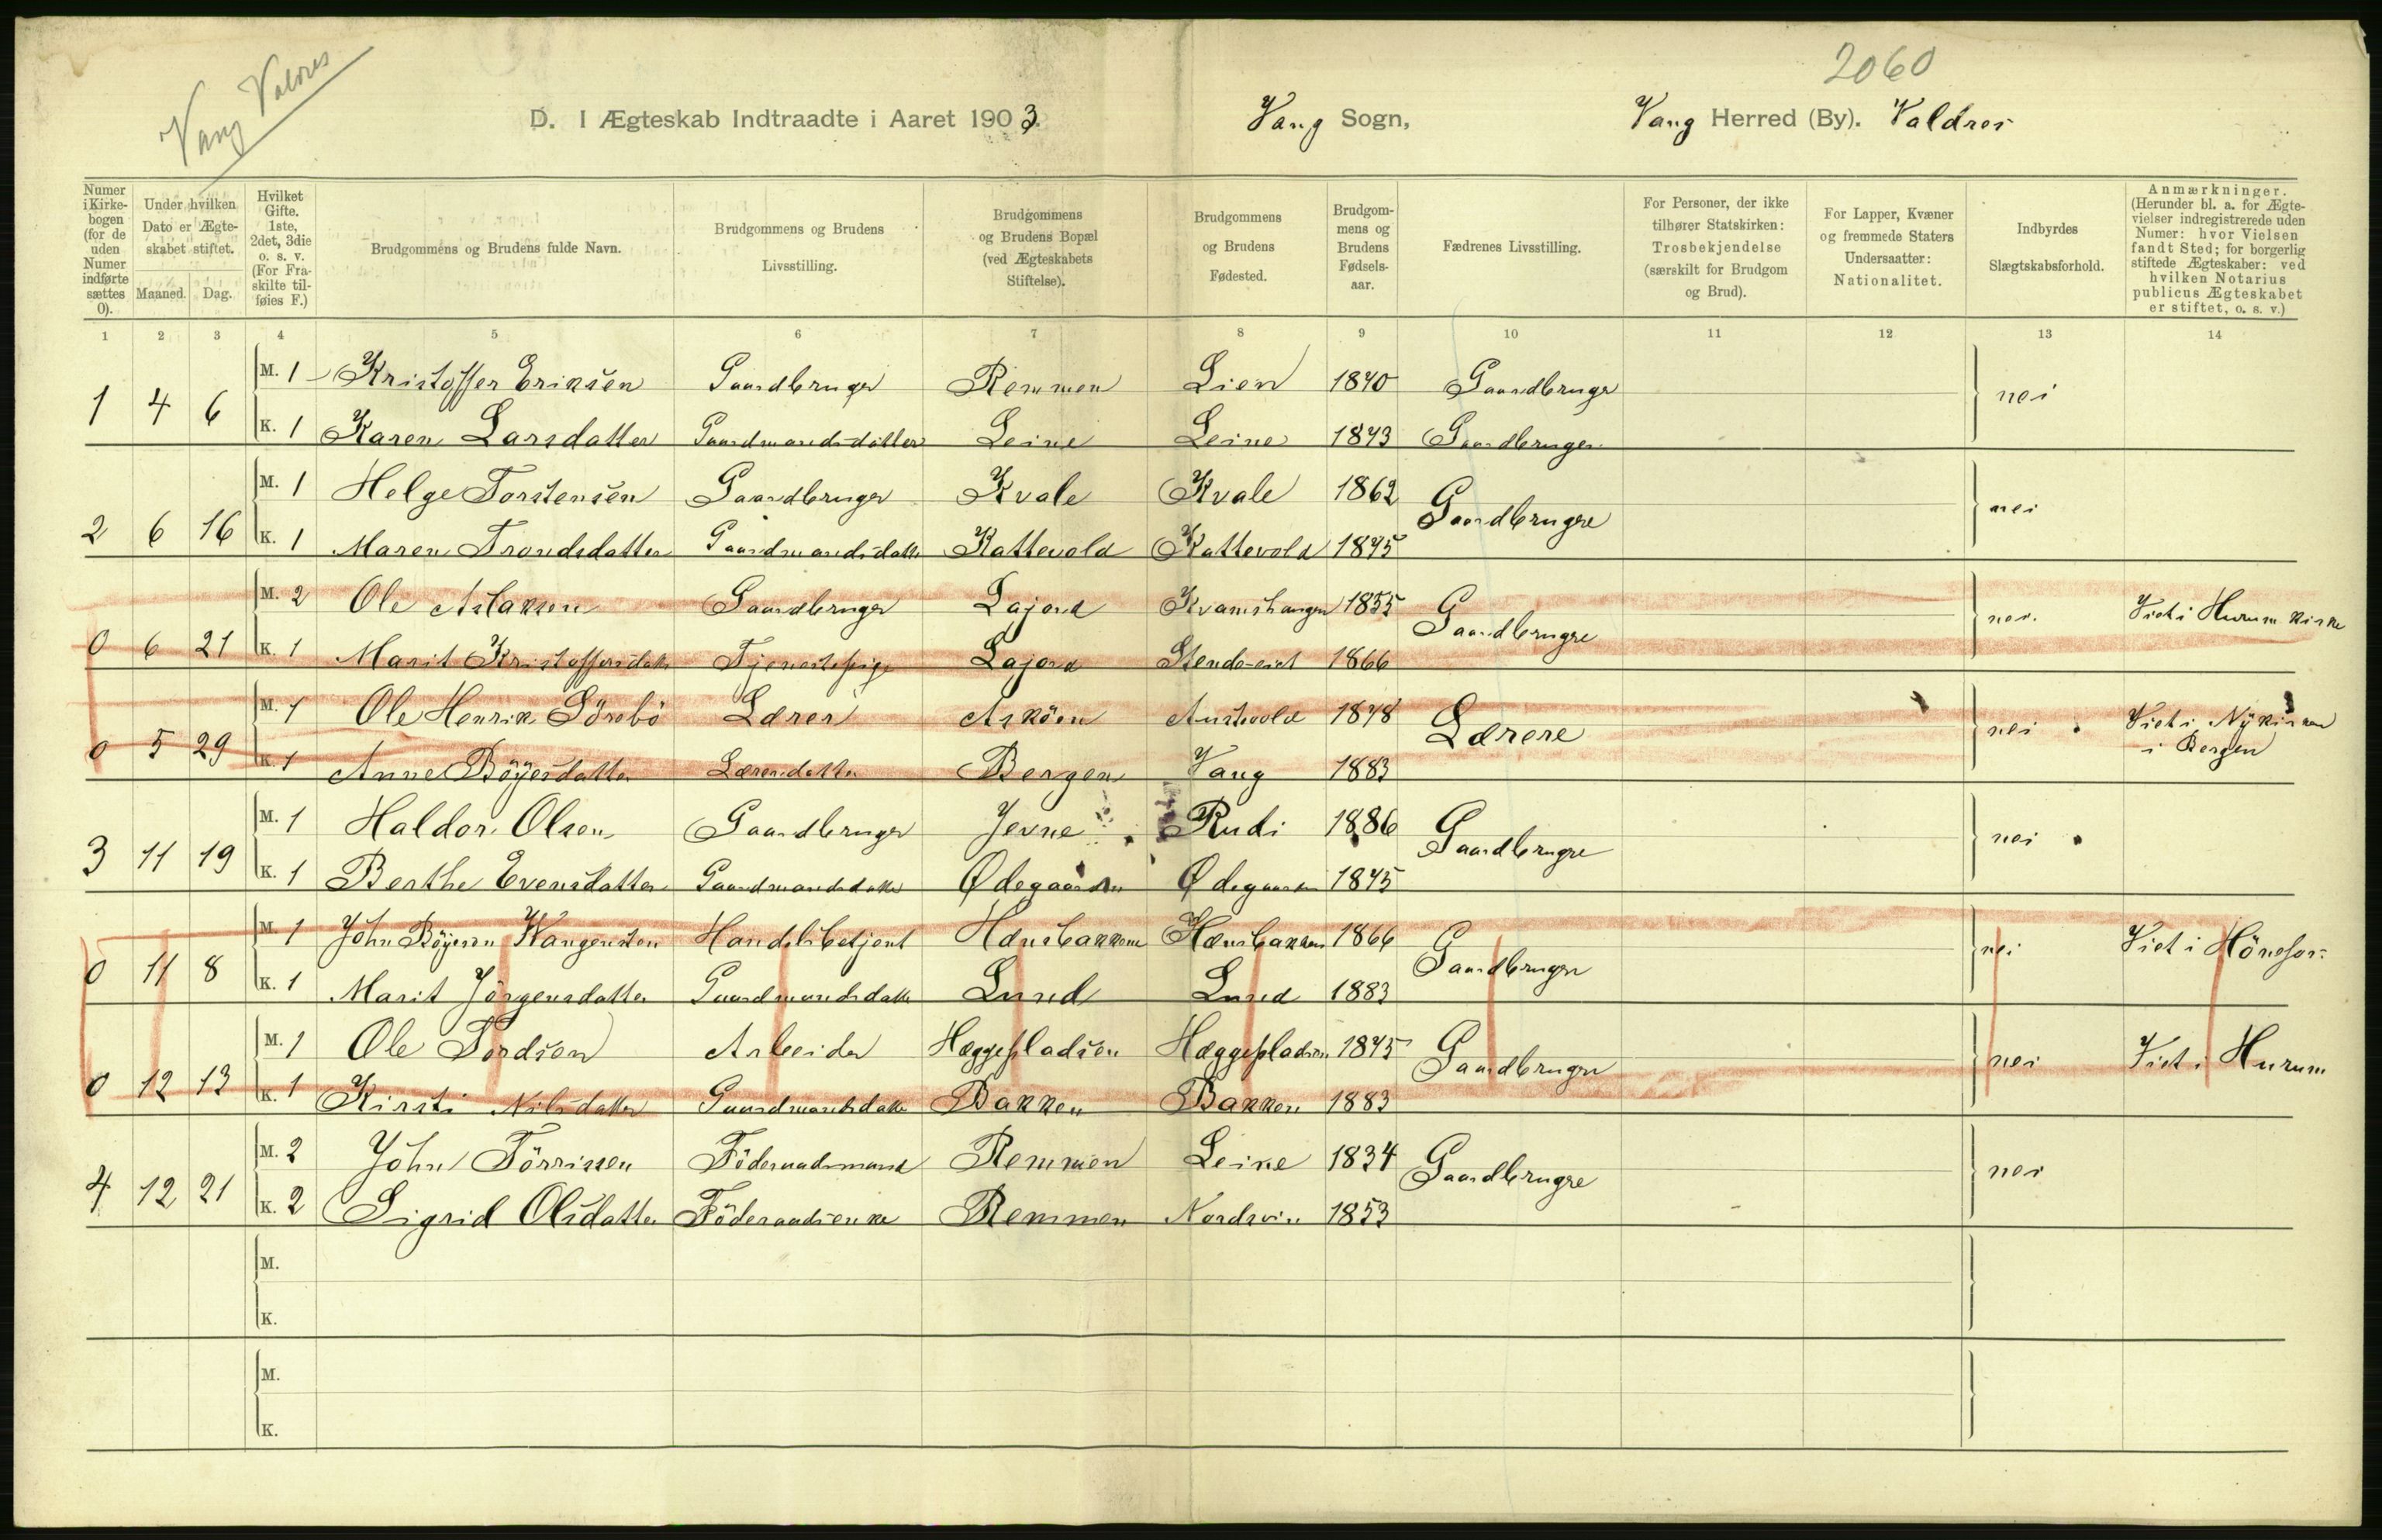 2060
Vang Valdres
D. I Ægteskab Indtraadte i Aaret 1903. Vang Sogn, Vang Herred (By). Valdres
Numer i Kirkebogen (for de uden Numer indførte sættes 0).
Under hvilken Dato er Ægteskabet stiftet.
Maaned. Dag.
Hvilket Gifte. 1ste, 2det, 3die o. s. v. (For Fraskilte tilføies F.)
Brudgommens og Brudens fulde Navn.
Brudgommens og Brudens Livsstilling.
Brudgommens og Brudens Bopæl (ved Ægteskabets Stiftelse).
Brudgommens og Brudens Fødested.
Brudgommens og Brudens Fødselsaar.
Fædrenes Livsstilling.
For Personer, der ikke tilhører Statskirken: Trosbekjendelse (særskilt for Brudgom og Brud).
For Lapper, Kvæner og fremmede Staters Undersaatter: Nationalitet.
Indbyrdes Slægtskabsforhold.
Anmærkninger. (Herunder bl. a. for Ægtevielser indregistrerede uden Numer: hvor Vielsen fandt Sted; for borgerlig stiftede Ægteskaber: ved hvilken Notarius publicus Ægteskabet er stiftet, o. s. v.)
1 2 3 4 5 6 7 8 9 10 11 12 13 14
1 4 6 M. 1 Kristoffer Eriksen Gaardbruger Remmen Lien 1840 Gaardbruger nei
K. 1 Karen Larsdatter Gaardmandsdatter Leine Leine 1843 Gaardbruger
2 6 16 M. 1 Helge Torstensen Gaardbruger Kvale Kvale 1862 Gaardbrugre nei
K. 1 Maren Trondsdatter Gaardmandsdatter Kattevold Kattevold 1875
0 6 21 M. 2 Ole Aslaksen Gaardbruger Lajord 1855 Gaardbrugre nei. Viet i Hurum kirke
K. 1 Marit Kristoffersdatt Tjenestepige Lajord 1866
0 5 29 M. 1 Ole Henrik Sörebö Lærer Asköen Austevold 1878 Lærere nei Viet i Nykirken
i Bergen
K. 1 Anne Böyesdatter Lærersdatter Bergen Vang 1883
3 11 19 M. 1 Haldor Olsen Gaardbruger Jevne Rudi 1886 Gaardbrugre nei
K. 1 Berthe Evensdatter Gaardmandsdatter Ødegaarden Ødegaarden 1875
0 11 8 M. 1 John Böyesen Wangensten Handelsbetjent Hænsbakken 1866 Gaardbruger nei Viet i Hönefos
K. 1 Marit Jörgensdatter Gaardmandsdatt Lund Lund 1883
0 12 13 M. 1 Ole Tordsen Arbeider Hæggepladsen Hæggepladsen 1875 Gaardbruger nei Viet i Hurum
K. 1 Kirsti Nilsdatter Gaardmandsdatt Bakken Bakken 1883
4 12 21 M. 2 John Törrissen Föderaadsmand Remmen Leine 1834 Gaardbrugre nei
K. 2 Sigrid Olsdatter Föderaadsenke Remmen 1853
M.
K.
M.
K.